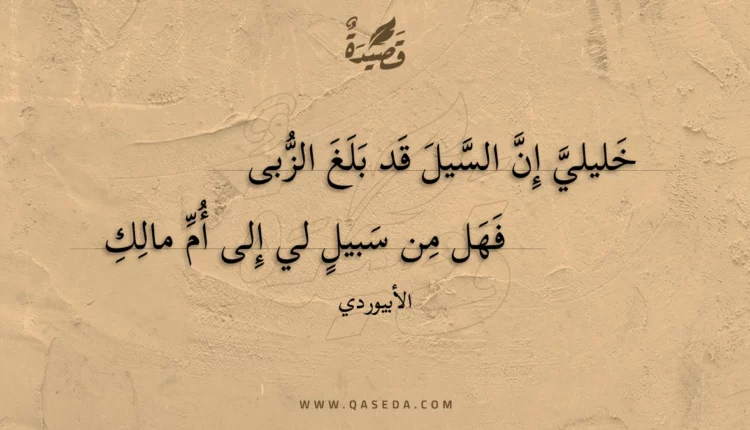 قَصِيدَةٌ
خَليليَّ إِنَّ السَّيلَ قَد بَلَغَ الزُّبى
فَهَل مِن سَبيلٍ لي إِلى أُمِّ مالِكِ
الأبيوردي
WWW.QASEDA.COM